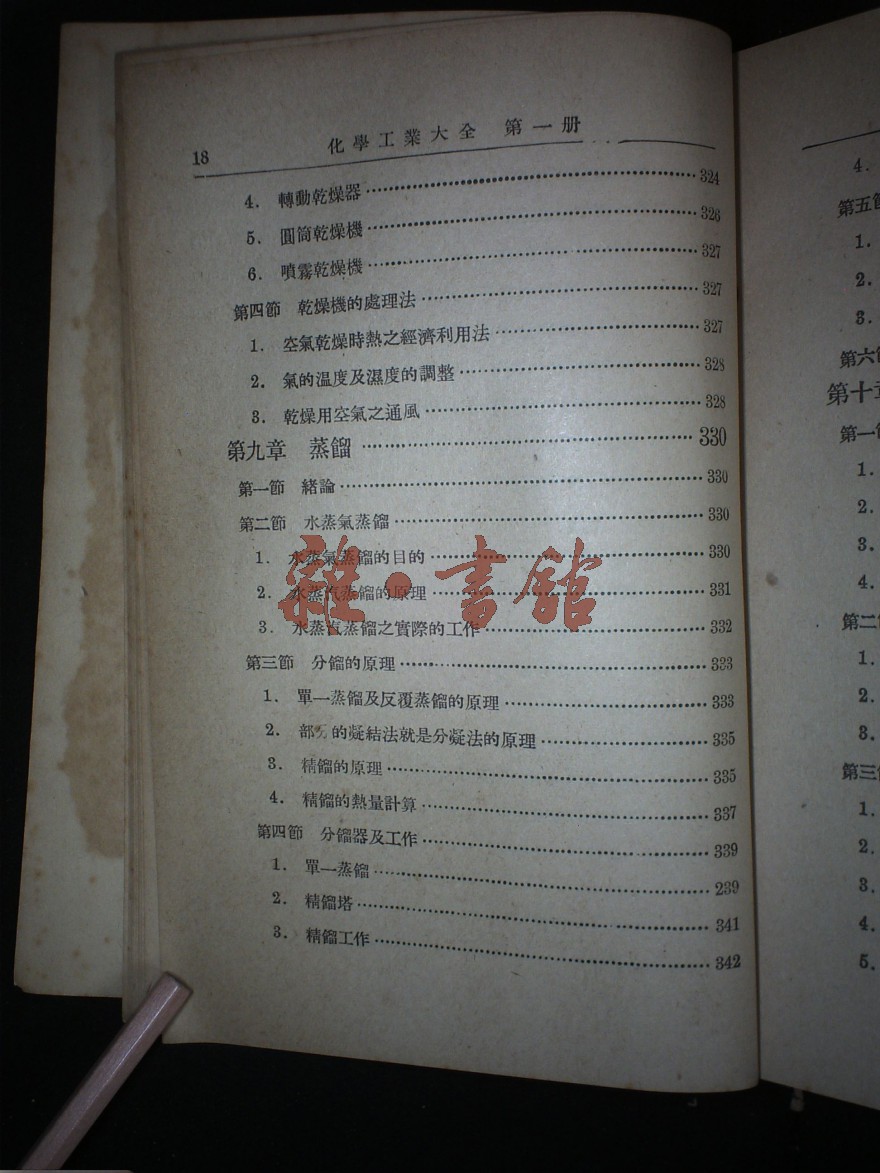 18 化學工業大全 第一册
4. 轉動乾燥器 324
5. 圓筒乾燥機 326
6. 噴霧乾燥機 327
第四節 乾燥機的處理法 327
1. 空氣乾燥時熱之經濟利用法 327
2. 氣的温度及濕度的調整 328
3. 乾燥用空氣之通風 328
第九章 蒸餾 330
第一節 緒論 330
第二節 水蒸氣蒸餾 330
1. 水蒸氣蒸餾的目的 330
2. 水蒸汽蒸餾的原理 331
3. 水蒸汽蒸餾之實際的工作 332
第三節 分餾的原理 333
1. 單一蒸餾及反覆蒸餾的原理 333
2. 部分的凝結法就是分凝法的原理 335
3. 精餾的原理 335
4. 精餾的熱量計算 337
第四節 分餾器及工作 339
1. 單一蒸餾 239
2. 精餾塔 341
3. 精餾工作 342
雜·書館
4.
第五節
1.
2.
3.
第六
第十章
第一
1.
2.
3.
4.
第二
1.
2.
3.
第三
1.
2.
3.
4.
5.